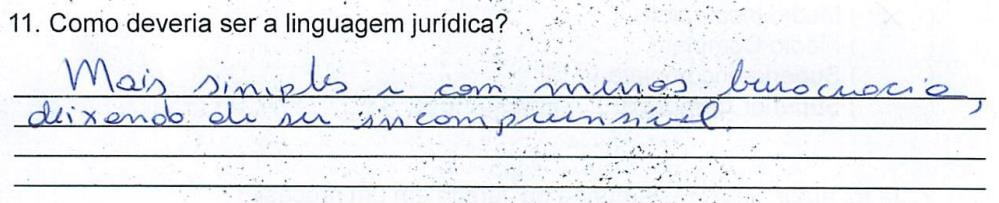 11. Como deveria ser a linguagem jurídica?
Mais simples e com menos burocracia,
deixando de ser incompreensível.